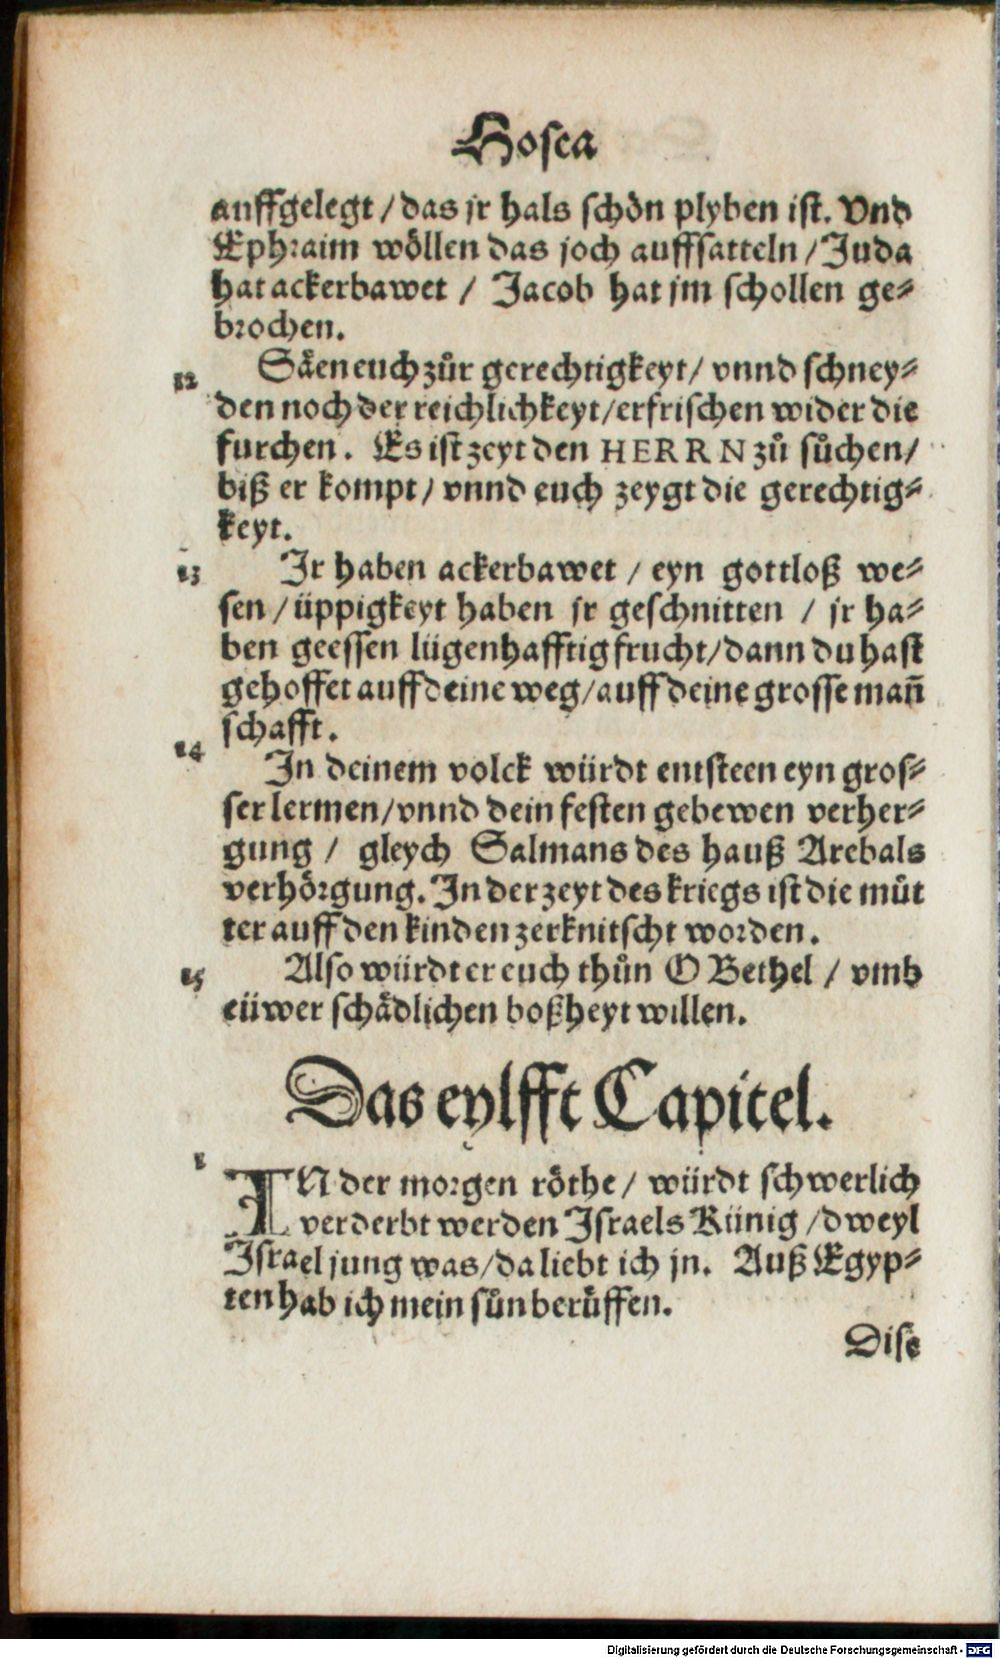 Hosea
auffgelegt / das jr hals schön plyben ist. Vnd
Ephraim wöllen das joch auffsatteln / Juda
hat ackerbawet / Jacob hat jm schollen ge⸗
brochen.
12 Säen euch zůr gerechtigkeyt / vnnd schney⸗
den noch der reichlichkeyt / erfrischen wider die
furchen. Es ist zeyt den HERRN zů sůchen /
biß er kompt / vnnd euch zeygt die gerechtig⸗
keyt.
13 Jr haben ackerbawet / eyn gottloß we⸗
sen / üppigkeyt haben jr geschnitten / jr ha⸗
ben geessen lügenhafftig frucht / dann du hast
gehoffet auff deine weg / auff deine grosse mañ
schafft.
14 In deinem volck würdt entsteen eyn gros⸗
ser lermen / vnnd dein festen gebewen verher⸗
gung / gleych Salmans des hauß Arebals
verhörgung. In der zeyt des kriegs ist die můt
ter auff den kinden zerknitscht worden.
15 Also würdt er euch thůn O Bethel / vmb
eüwer schädlichen boßheyt willen.
Das eylfft Capitel.
1 IN der morgen röthe / würdt schwerlich
verderbt werden Israels Künig / dweyl
Israel jung was / da liebt ich jn. Auß Egyp⸗
ten hab ich mein sůn berůffen.
Dise
Digitalisierung gefördert durch die Deutsche Forschungsgemeinschaft - DFG